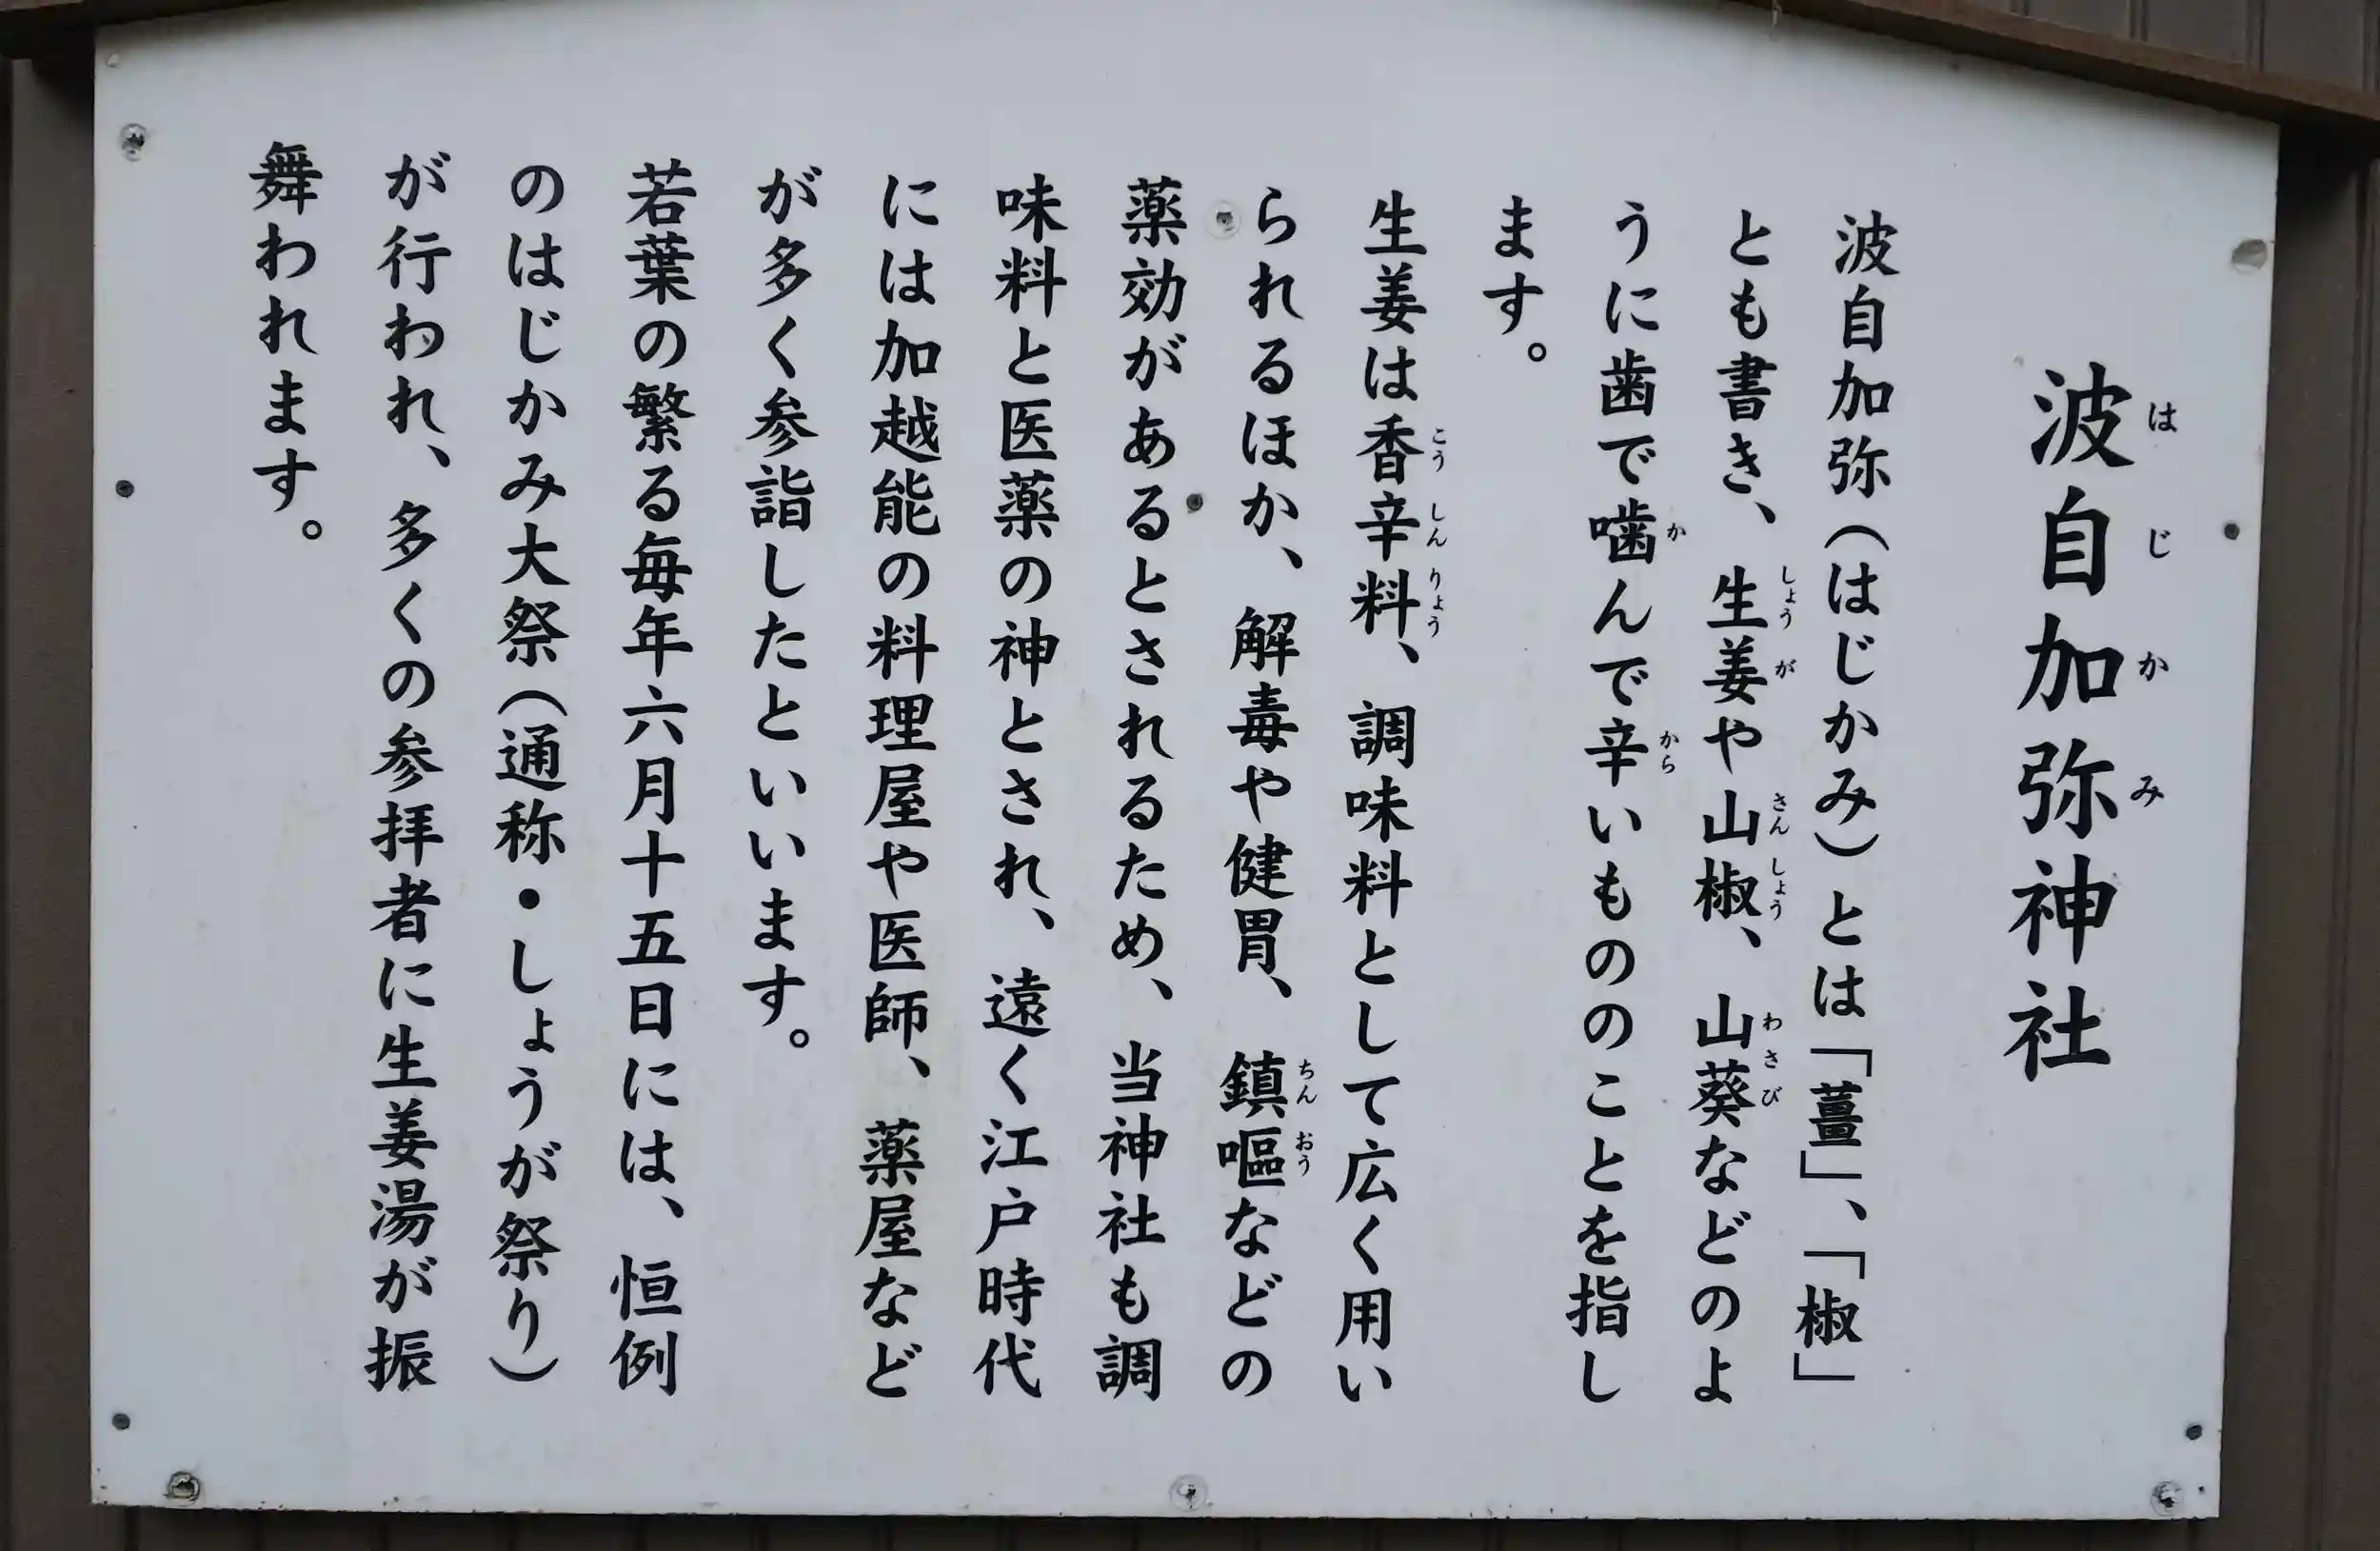 波自加弥神社
はじかみ
波自加弥(はじかみ)とは「薑」、「椒」
とも書き、生姜や山椒、山葵などのよ
しょうが さんしょう わさび
うに歯で噛んで辛いもののことを指し
か から
ます。
生姜は香辛料、調味料として広く用い
こうしんりょう
られるほか、解毒や健胃、鎮嘔などの
ちんおう
薬効があるとされるため、当神社も調
味料と医薬の神とされ、遠く江戸時代
には加越能の料理屋や医師、薬屋など
が多く参詣したといいます。
若葉の繁る毎年六月十五日には、恒例
のはじかみ大祭(通称・しょうが祭り)
が行われ、多くの参拝者に生姜湯が振
舞われます。